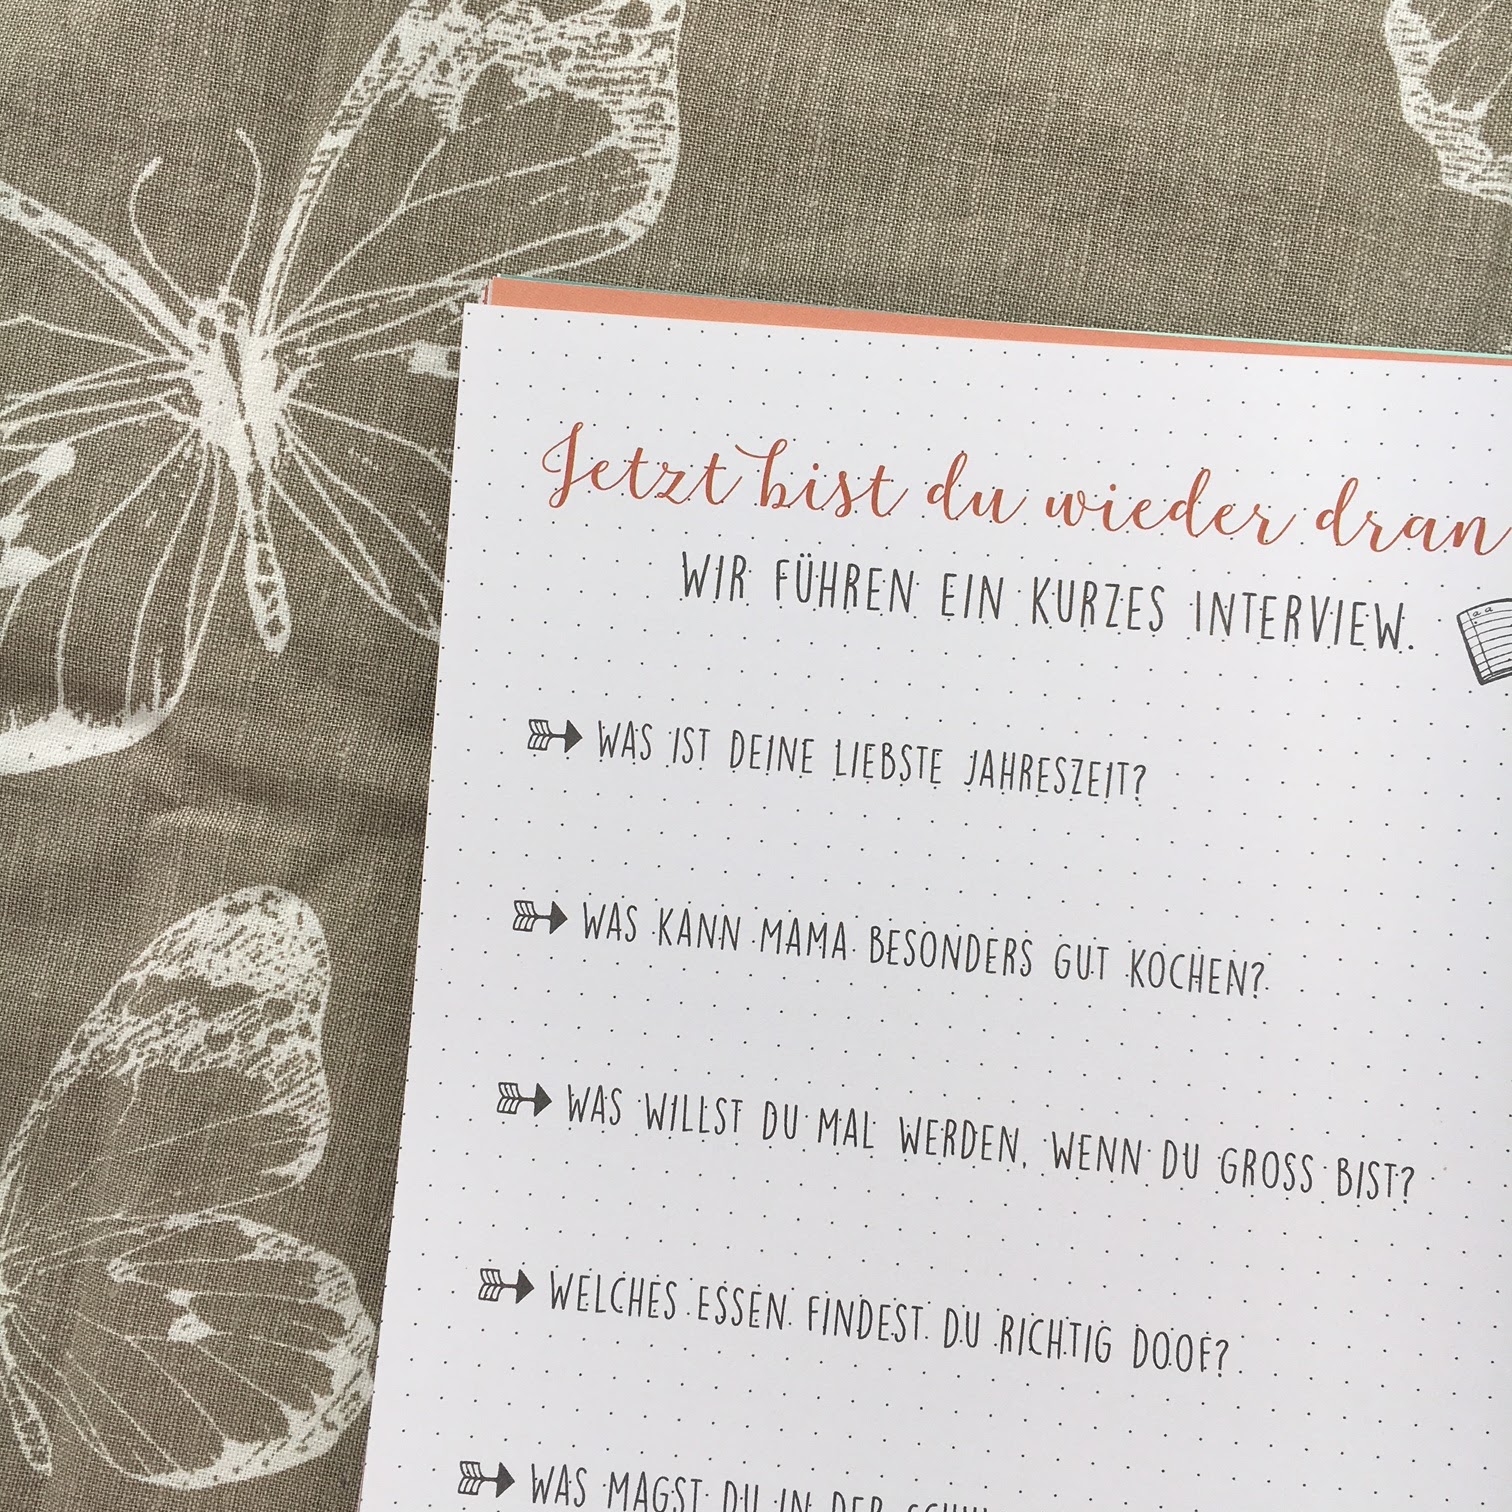 Jetzt bist du wieder dran
WIR FÜHREN EIN KURZES INTERVIEW.
WAS IST DEINE LIEBSTE JAHRESZEIT?
WAS KANN MAMA BESONDERS GUT KOCHEN?
WAS WILLST DU MAL WERDEN, WENN DU GROSS BIST?
WELCHES ESSEN FINDEST DU RICHTIG DOOF?
WAS MAGST DU IN DER